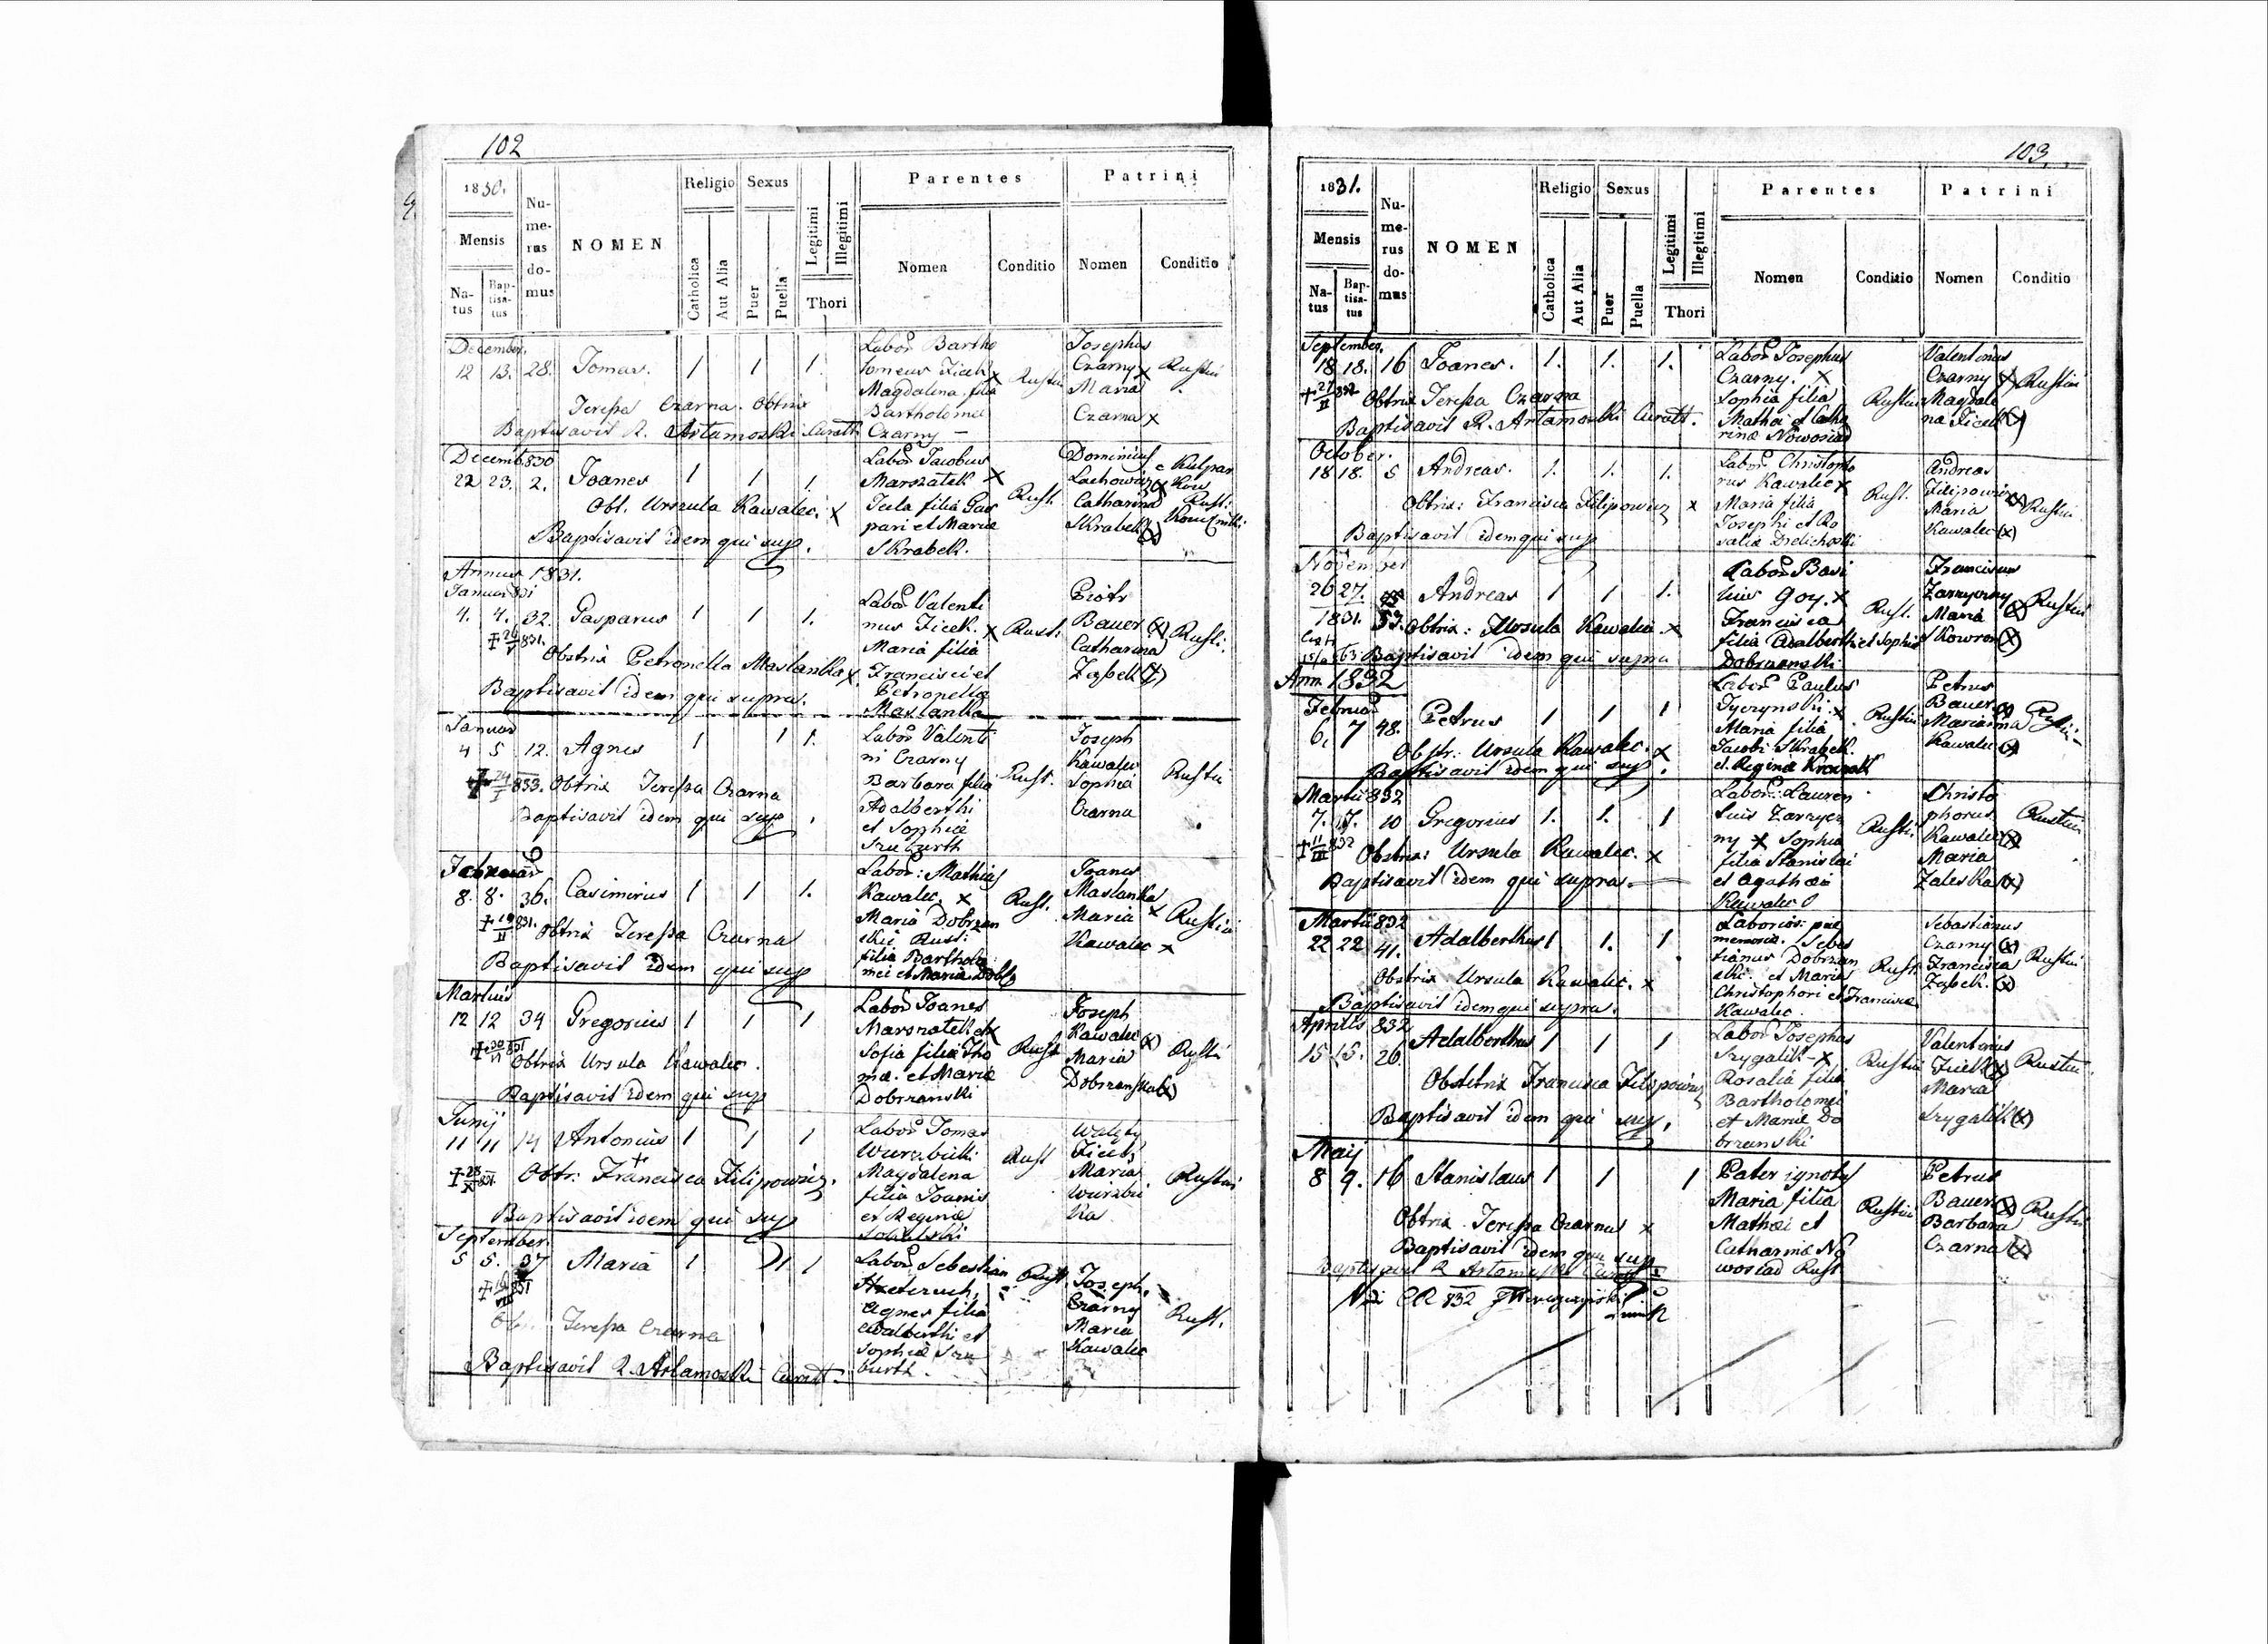 102
1830.
Mensis
Na-
tus
Bap-
tisa-
tus
Nu-
me-
rus
do-
mus
NOMEN
Religio
Catholica
Aut Alia
Sexus
Puer
Puella
Legitimi
Illegitimi
Thori
Parentes
Nomen
Conditio
Patrini
Nomen
Conditio
December.
12 13. 28. Tomas. 1 1 1.
Teressa Czarna. Obtrix
Baptisavit R. Artamoski Curatt
Labor Bartho
lomeus Ficek x
Magdalena filia
Bartholomei
Czarny
Rustici
Josephus
Czarny x
Maria
Czarna x
Rustici
Decemb 830
22 23. 2. Joanes 1 1 1.
Obt. Urszula Kawalec. x
Baptisavit idem qui sup.
Labor Jacobus
Marszatek x
Tecla filia Gas
pari et Maria
Skrabek.
Rust.
Dominius
Lachowicz x
Catharina
Skrabek (x)
Annus 1831.
Januar
4. 4. 32. Gasparus 1 1 1.
Obstrix Petronella Maslanka x
Baptisavit idem qui supra.
Labor Valenti
nus Ficek. x
Maria filia
Francisci et
Petronella
Maslanka
Rust.
Piotr
Bauer (x)
Catharina
Zabek (x)
Rusti.
Januar
4 5 12. Agnes 1 1 1.
+ 24/I 833. Obtrix Teressa Czarna
Baptisavit idem qui sup.
Labor Valenti
ni Czarny
Barbara filia
Adalberthi
et Sophiæ
Szuburth
Rust.
Joseph
Kawalec
Sophia
Czarna
Rustici
Februar
8. 8. 36. Casimirus 1 1 1.
+ 19/II 831. Obtrix Teressa Czarna
Baptisavit idem qui sup
Labor: Mathias
Kawalec. x
Maria Dobrzan
skie Rust:
filia Bartholo
mei et Maria Dobr
Rust.
Joanes
Maslanka
Maria x
Kawalec x
Rustici
Martius
12 12 34 Gregorius 1 1 1
Obtrix Ursula Kawalec.
Baptisavit idem qui sup
Labor Joanes
Marszatek x
Sofia filia Tho
mæ et Mariæ
Dobrzanski
Rust
Joseph
Kawalec (x)
Maria
Dobrzanska (x)
Rustici
Junij
11 11 14 Antonius 1 1 1
Obtr: Francisca Filipowicz.
Baptisavit idem qui sup
Labor Tomas
Wurzbicki
Magdalena
filia Joannis
et Reginæ
Sobulski
Rust
Walęty
Ficek
Maria
Wurzbic
ka
Rustici
September.
5 5. 37 Maria 1 1 1
Teressa Czarna
Baptisavit R. Artamoski Curatt.
Labor Sebestian
Agnes filia
Adalberthi et
Sophiæ Szu
burth.
Rust.
Joseph.
Czarny
Maria
Kawalec
Rust.
103
1831.
Mensis
Na-
tus
Bap-
tisa-
tus
Nu-
me-
rus
do-
mus
NOMEN
Religio
Catholica
Aut Alia
Sexus
Puer
Puella
Legitimi
Illegitimi
Thori
Parentes
Nomen
Conditio
Patrini
Nomen
Conditio
September.
18 18. 16 Joanes. 1. 1. 1.
Obtrix Teressa Czarna
Baptisavit R. Artamoski Curatt.
Labor Josephus
Czarny. x
Sophia filia
Mathei et Catha
rinæ Nowosiad
Rustici
Valentinus
Czarny (x)
Magdale
na Ficek (x)
Rustici
October.
18 18. 5 Andreas. 1. 1. 1.
Obtrix: Francisca Filipowicz x
Baptisavit idem qui sup
Labor Christopho
rus Kawalec x
Maria filia
Josephi et Ro
salia
Rust.
Andreas
Filipowicz (x)
Maria
Kawalec (x)
Rustici
November
26 27. Andreas 1 1 1.
1831. 53. Obtrix: Ursula Kawalec. x
Baptisavit idem qui supra
Labor Basi
lius Goy. x
Francisca
filia Adalberthi et Sophia
Dobrzanski
Rust.
Francisus
Zarzyczny (x)
Maria
Skowron (x)
Rustici
Ann. 1832
Februar
6. 7 48. Petrus 1 1 1
Obstr: Ursula Kawalec. x
Baptisavit idem qui sup.
Labor Paulus
Tyczynski. x
Maria filia
Jacobi Skrabek.
et Reginæ
Rustici
Petrus
Bauer (x)
Marianna
Kawalec (x)
Martii 832
7. 7. 10 Gregorius 1. 1. 1
+ 11/III 832 Obstrix: Ursula Kawalec. x
Baptisavit idem qui supras
Labor: Lauren
tius Zarzycz
ny x Sophia
filia Stanislai
et Agatha
Kawalec
Rustici
Christo
phorus
Kawalec (x)
Maria
Zaleska (x)
Rustici
Martii 832
22 22 41. Adalberthus 1 1. 1
Obstrix Ursula Kawalec. x
Baptisavit idem qui supra.
Laborios: piæ
memoriæ. Sebas
tianus Dobrzan
ski. et Maria
Christophori et Francisca
Kawalec.
Rust.
Sebastianus
Czarny (x)
Francisca
Zabek. (x)
Rustici
Aprilis 832
15 15. 26. Adalberthus 1 1 1
Obstetrix Francisca Filipowicz
Baptisavit idem qui sup.
Labor Josephus
Szygalik x
Rosalia filia
Bartholomei
et Mariæ Do
brzanski
Rustici
Valentinus
Ficek (x)
Maria
Szygalik (x)
Rustici.
Maij
8 9. 16 Stanislaus 1 1 1
Obtrix Teressa Czarna x
Baptisavit idem qui sup
Baptisavit R Artamoski Curatt
Pater ignotus
Maria filia
Mathæi et
Catharinæ No
wosiad Rust
Rustici
Petrus
Bauer (x)
Barbara
Czarna (x)
Rustici